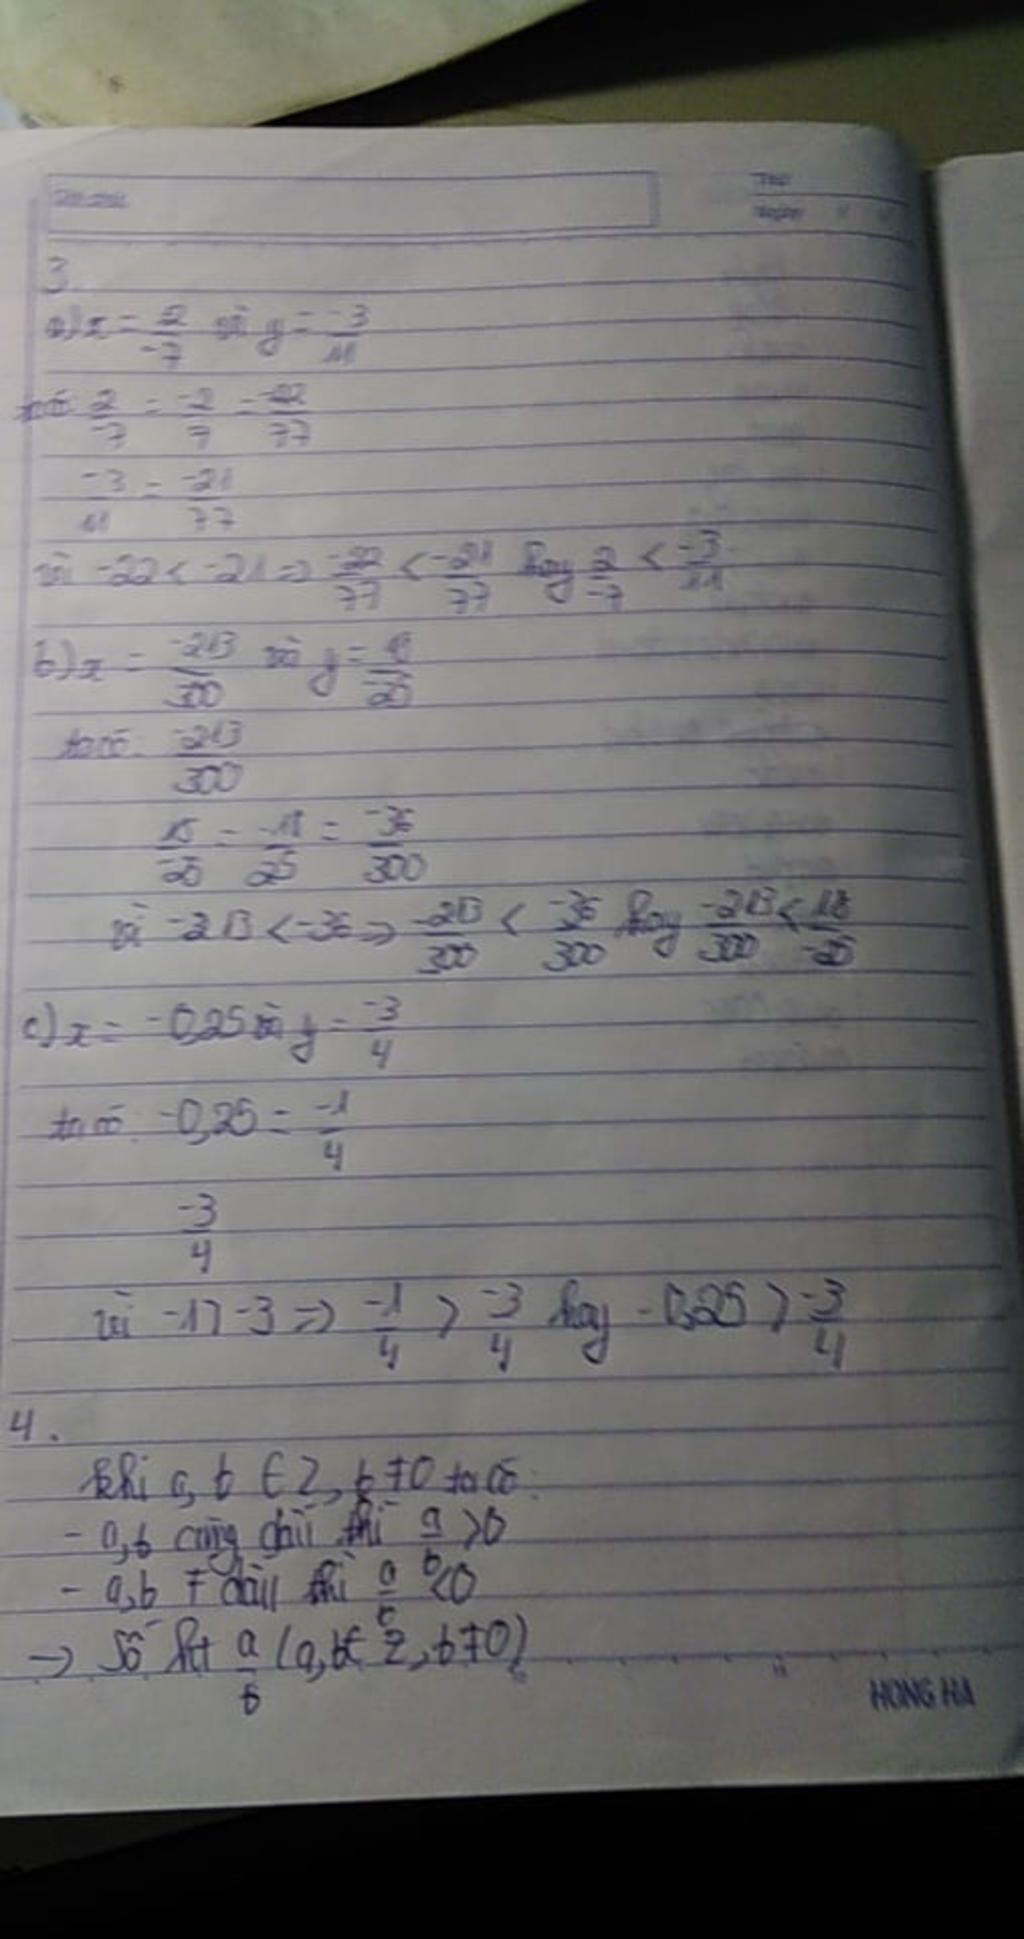 3.
a) x = 2/-7 và y = -3/11
2/-7 = -2/7 = -22/77
-3/11 = -21/77
vì -22 < -21 => -22/77 < -21/77 hay 2/-7 < -3/11
b) x = -213/300 và y = 18/-25
ta có: -213/300
18/-25 = -18/25 = -36/300
vì -213 < -36 => -213/300 < -36/300 hay -213/300 < 18/-25
c) x = -0,25 và y = -3/4
ta có: -0,25 = -1/4
-3/4
vì -1 > -3 => -1/4 > -3/4 hay -0,25 > -3/4
4.
khi a, b ∈ Z, b ≠ 0 ta có:
- a, b cùng dấu thì a/b > 0
- a, b ≠ dấu thì a/b < 0
→ Số hữ tỉ a/b (a, b ∈ Z, b ≠ 0)
HONG HA